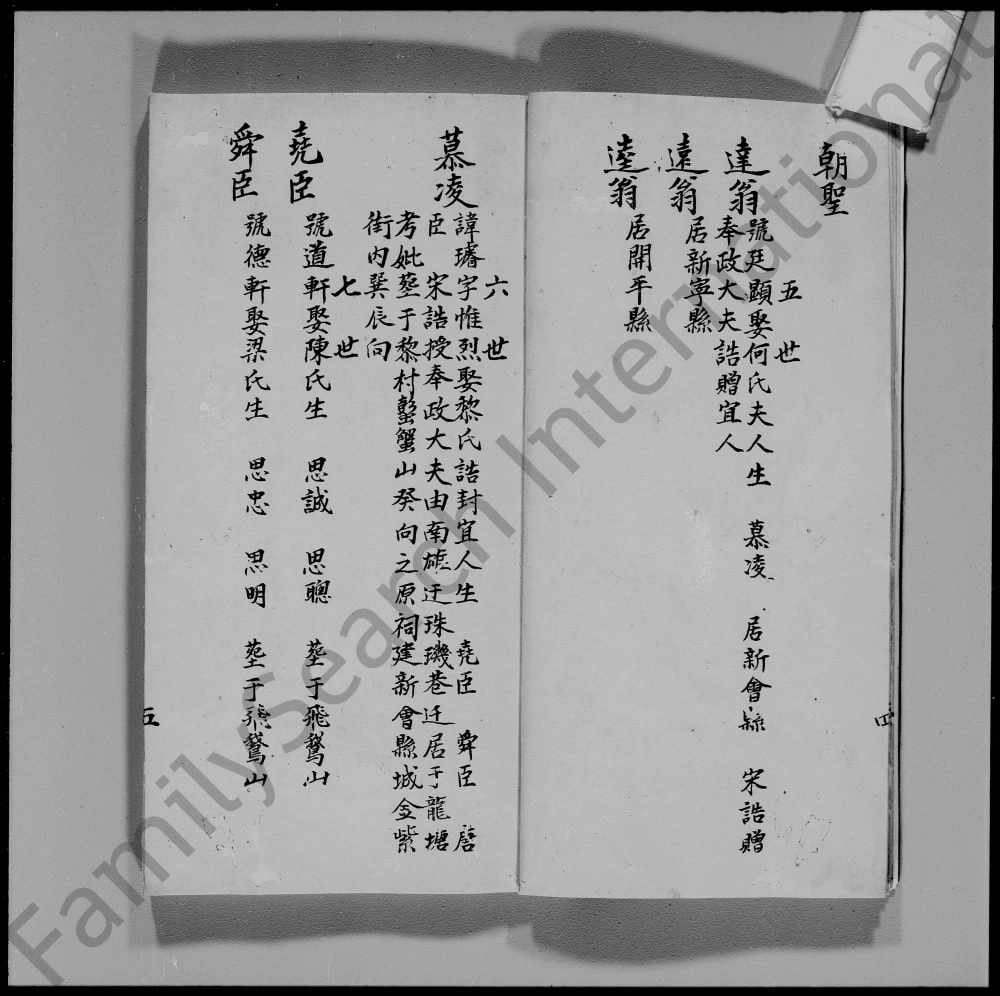 朝聖
五世
達翁 號廷顯娶何氏夫人生 慕凌 居新會縣 宋誥贈
奉政大夫 誥贈宜人
遠翁 居新寧縣
逵翁 居開平縣
四
六世
慕凌 諱璿字惟烈娶黎氏誥封宜人生 堯臣 舜臣
臣 宋誥授奉政大夫由南雄迁珠璣巷迁居于龍塘
考妣塟于黎村螯蟹山癸向之原祠建新會縣城金紫
街內巽辰向
七世
堯臣 號道軒娶陳氏生 思誠 思聰 塟于飛鵞山
舜臣 號德軒娶梁氏生 思忠 思明 塟于飛鵞山
五
FamilySearch International